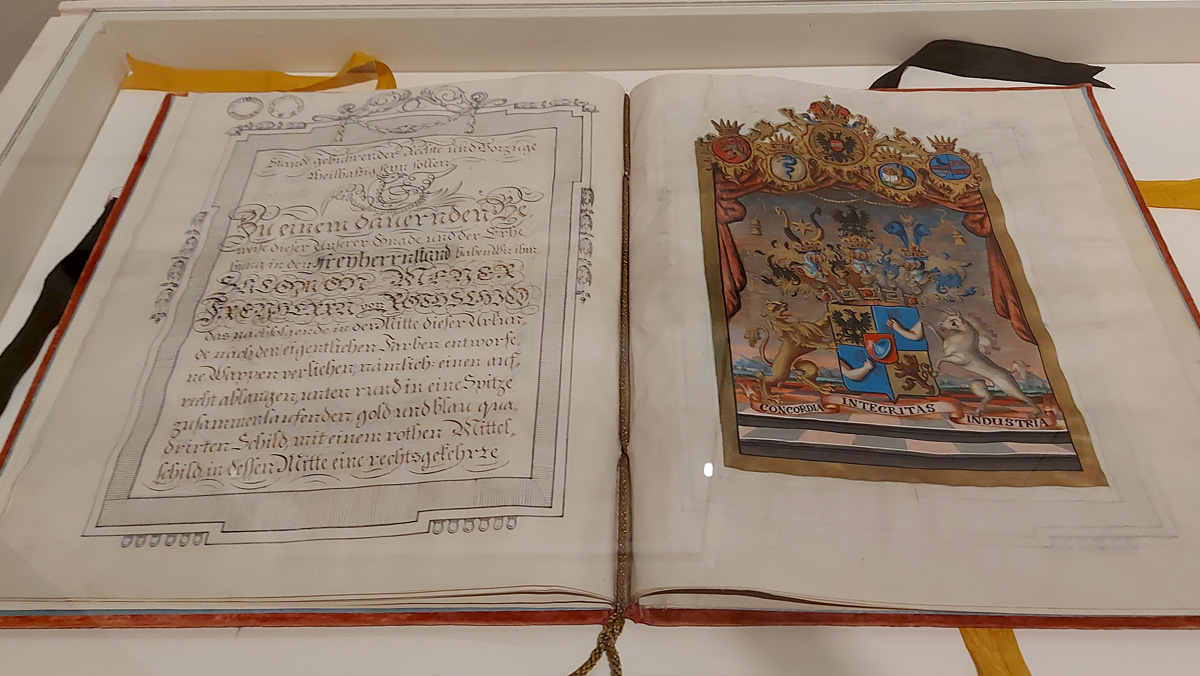 Stand gebührender Rechte und Vorzüge
theilhaftig seyn sollen.
Zu einem dauernden Be-
weise dieser Unserer Gnade und der Erhe-
bung in den Freyherrnstand haben Wir ihm
SALOMON MEYER
FREYHERRN von ROTHSCHILD
das nachfolgende in der Mitte dieser Urkun-
de nach den eigentlichen Farben entworfe-
ne Wappen verliehen, nämlich: einen auf-
recht ablangen, unten rund in eine Spitze
zusammenlaufenden gold und blau qua-
drirten Schild mit einem rothen Mittel-
schild, in dessen Mitte eine rechtsgekehrte
CONCORDIA
INTEGRITAS
INDUSTRIA